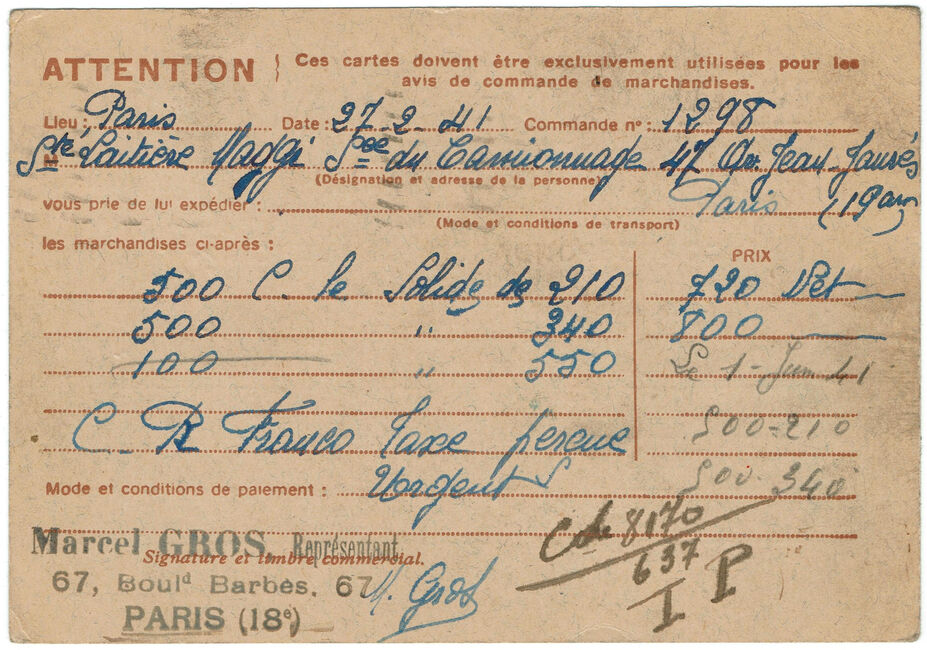 ATTENTION } Ces cartes doivent être exclusivement utilisées pour les
avis de commande de marchandises.
Lieu : Paris Date : 27-2-41 Commande n° : 1298
Sté Laitière Maggi Sce du Camionnage 47 Av. Jean-Jaurès
(Désignation et adresse de la personne)
vous prie de lui expédier : Paris (19 arr)
(Mode et conditions de transport)
les marchandises ci-après :
PRIX
500 C. le Solide de 210 720 Net
500 " 340 800
100 " 550 Le 1-Juin 41
500-210
C. R Franco Taxe
500-340
Mode et conditions de paiement : Urgent
Cde 8170
637
I P
Marcel GROS, Représentant
Signature et timbre commercial.
67, Bould Barbès, 67 M. Gros
PARIS (18e)